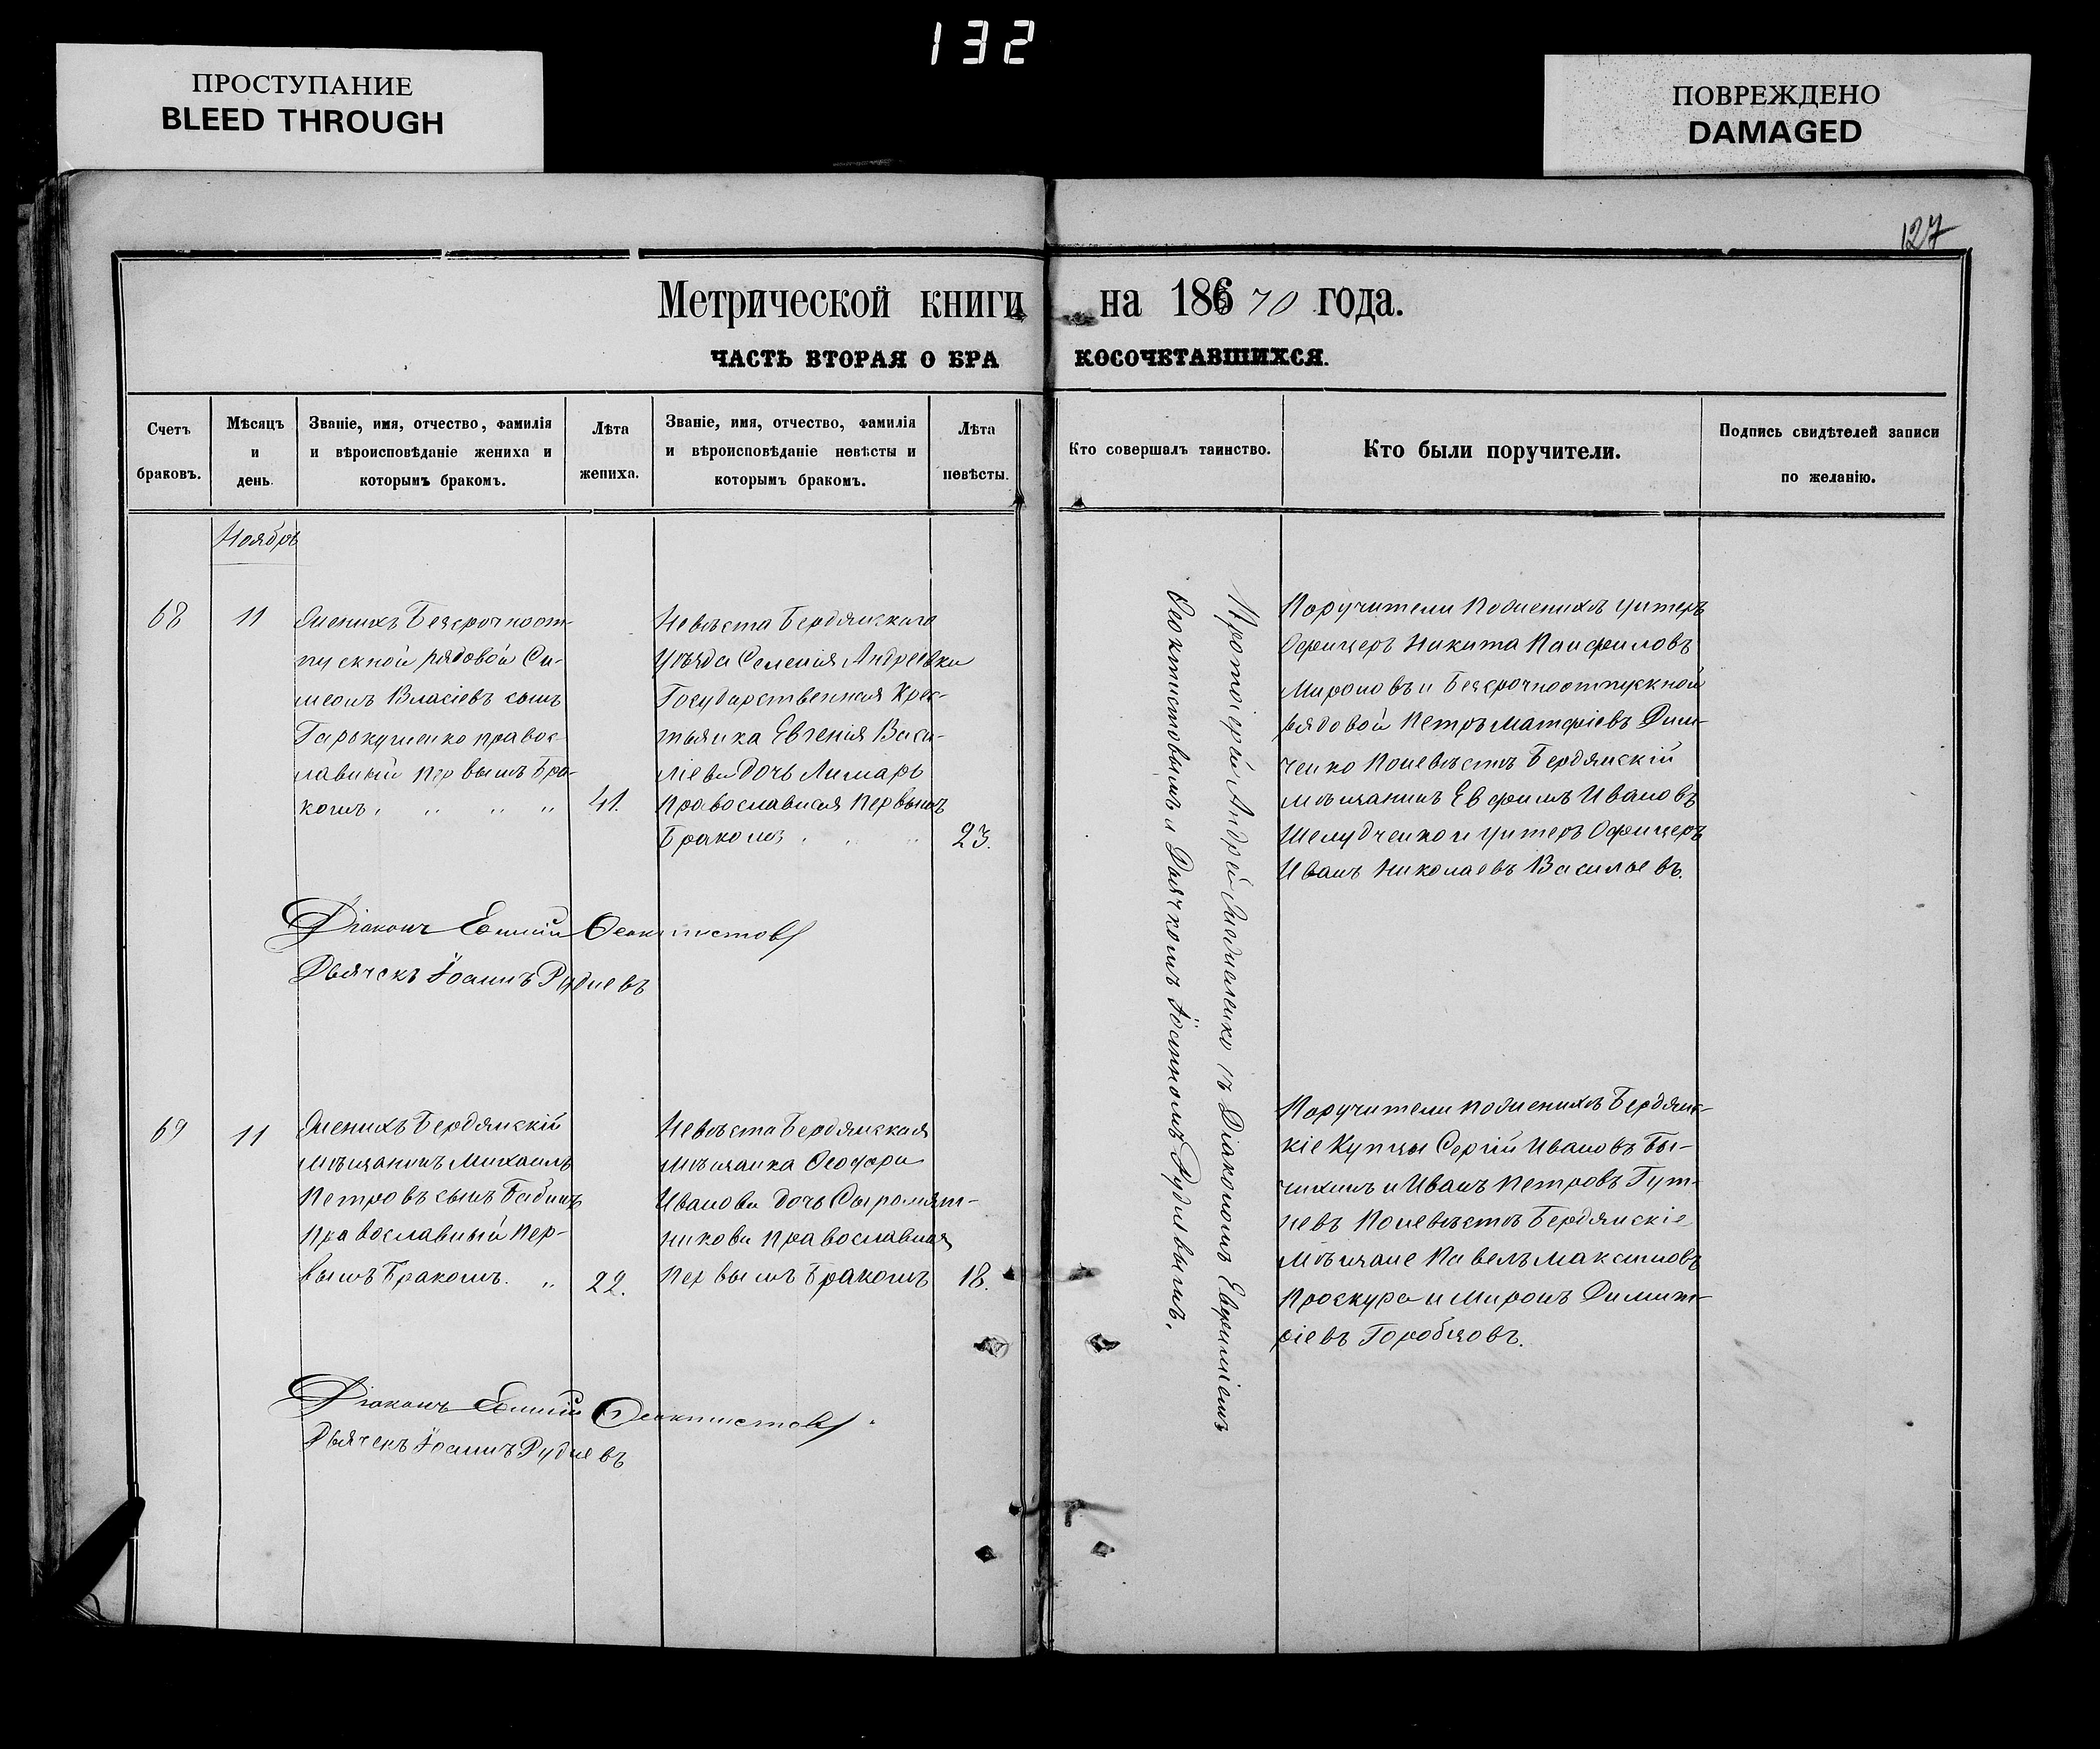 132
ПРОСТУПАНИЕ
BLEED THROUGH
ПОВРЕЖДЕНО
DAMAGED
127
Метрической книги на 186 70 года.
ЧАСТЬ ВТОРАЯ О БРАКОСОЧЕТАВШИХСЯ.
Счетъ
браковъ.
Мѣсяцъ
и
день.
Званіе, имя, отчество, фамилія
и вѣроисповѣданіе жениха и
которымъ бракомъ.
Лѣта
жениха.
Званіе, имя, отчество, фамилія
и вѣроисповѣданіе невѣсты и
которымъ бракомъ.
Лѣта
невѣсты.
Кто совершалъ таинство.
Кто были поручители.
Подпись свидѣтелей записи
по желанію.
Ноябрь
68
11
Женихъ Безсрочноот-
пускной рядовой Си-
меонъ Власіевъ сынъ
Гаркушенко правос-
лавный первымъ бра-
комъ
41.
Невѣста Бердянскаго
Уѣзда Селенія Андреевки
Государственная Крес-
тьянка Евгенія Васи-
ліева дочь Лимарь
Православная первымъ
Бракомъ
23.
Діаконъ Евфимій Феоктистовъ
Дьячекъ Іоаннъ Рудневъ
69
11
Женихъ Бердянскій
мѣщанинъ Михаилъ
Петровъ сынъ Бабинъ
Православный пер-
вымъ Бракомъ.
22.
Невѣста Бердянская
мѣщанка
Иванова дочь Сыромят-
никова православная
первымъ Бракомъ
18.
Діаконъ Евфимій Феоктистовъ
Дьячекъ Іоаннъ Рудневъ
Протоіерей Андрей съ Діакономъ Евфиміемъ
Феоктистовымъ и Дьячкомъ Іоанномъ Рудневымъ.
Поручители по женихѣ унтеръ
Офицеръ Никита Панфиловъ
Мироновъ и Безсрочноотпускной
рядовой Петръ Матфіевъ Дим-
ченко По невѣстѣ Бердянскій
мѣщанинъ Евфимъ Ивановъ
Шелудченко и унтеръ Офицеръ
Иванъ Николаевъ Васильевъ.
Поручители по женихѣ Бердянс-
кіе Купцы Сергій Ивановъ Бы-
чихинъ и Иванъ Петровъ Гут-
невъ По невѣстѣ Бердянскіе
Мѣщане Павелъ Максимовъ
Проскура и Миронъ Димит-
ріевъ Горобцовъ.